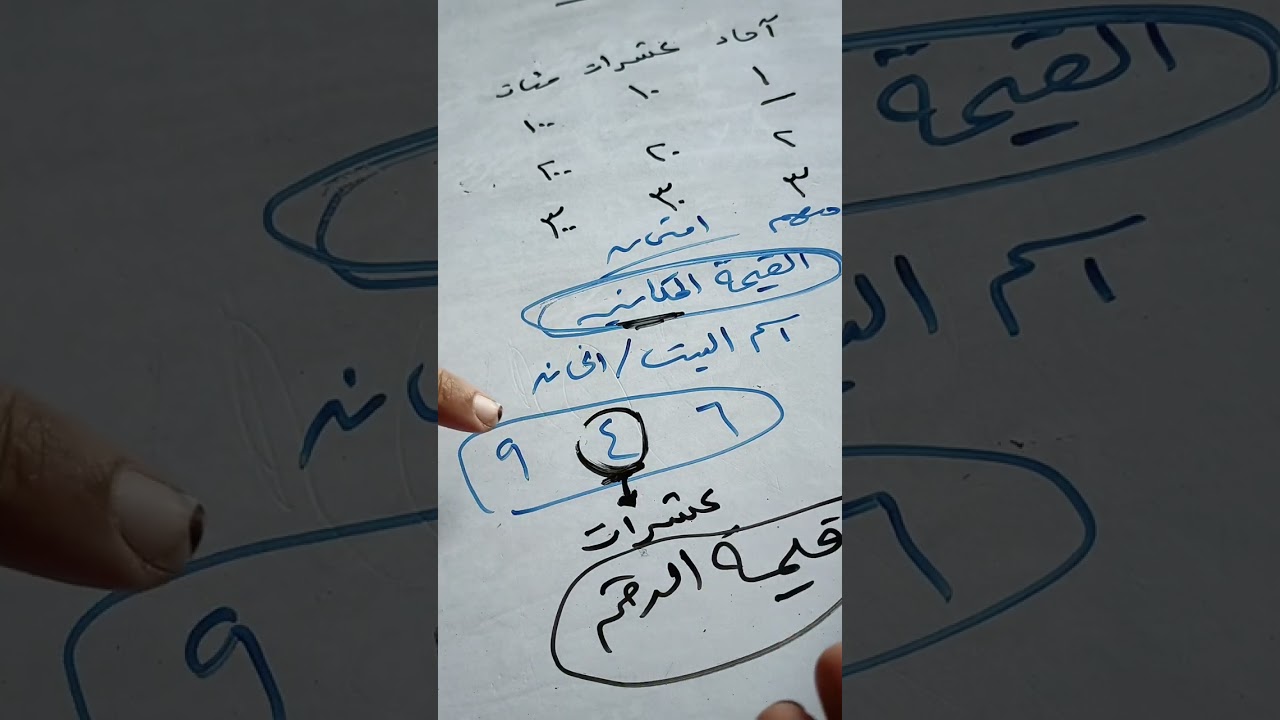 آحاد عشرات مئات
١ ١٠ ١٠٠
٢ ٢٠ ٢٠٠
٣ ٣٠ ٣٠٠
مهم امتحان
القيمة المكانيه
اسم البيت / الخانه
٩ ٤ ٦
عشرات
قيمة الرقم